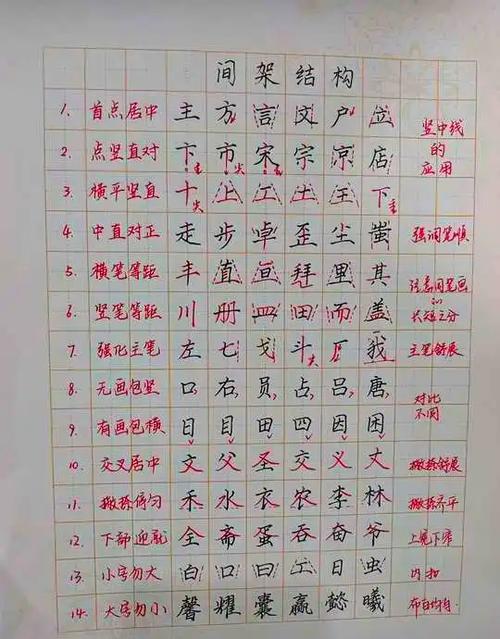 间架结构
1. 首点居中 主 方 言 文 户 立 竖中线
2. 点竖直对 卞 市 宋 宗 京 店 的应用
3. 横平竖直 十 上 工 土 王 下
4. 中直对正 走 步 卓 歪 尘 蚩 强调笔顺
5. 横笔等距 丰 值 亘 拜 里 其 注意同笔画
6. 竖笔等距 川 册 皿 田 而 盖 的长短之分
7. 强化主笔 左 七 戈 斗 厂 我 主笔舒展
8. 无画包竖 口 右 员 占 吕 唐 对比
9. 有画包横 日 目 田 四 因 困 不同
10. 交叉居中 文 父 圣 交 义 丈 撇捺舒展
11. 撇捺停匀 禾 水 衣 农 李 林 撇捺齐平
12. 下部迎就 全 斋 蛋 吞 奋 爷 上宽下窄
13. 小字勿大 白 口 曰 工 日 虫 内扣
14. 大字勿小 馨 耀 囊 赢 懿 曦 布白均匀